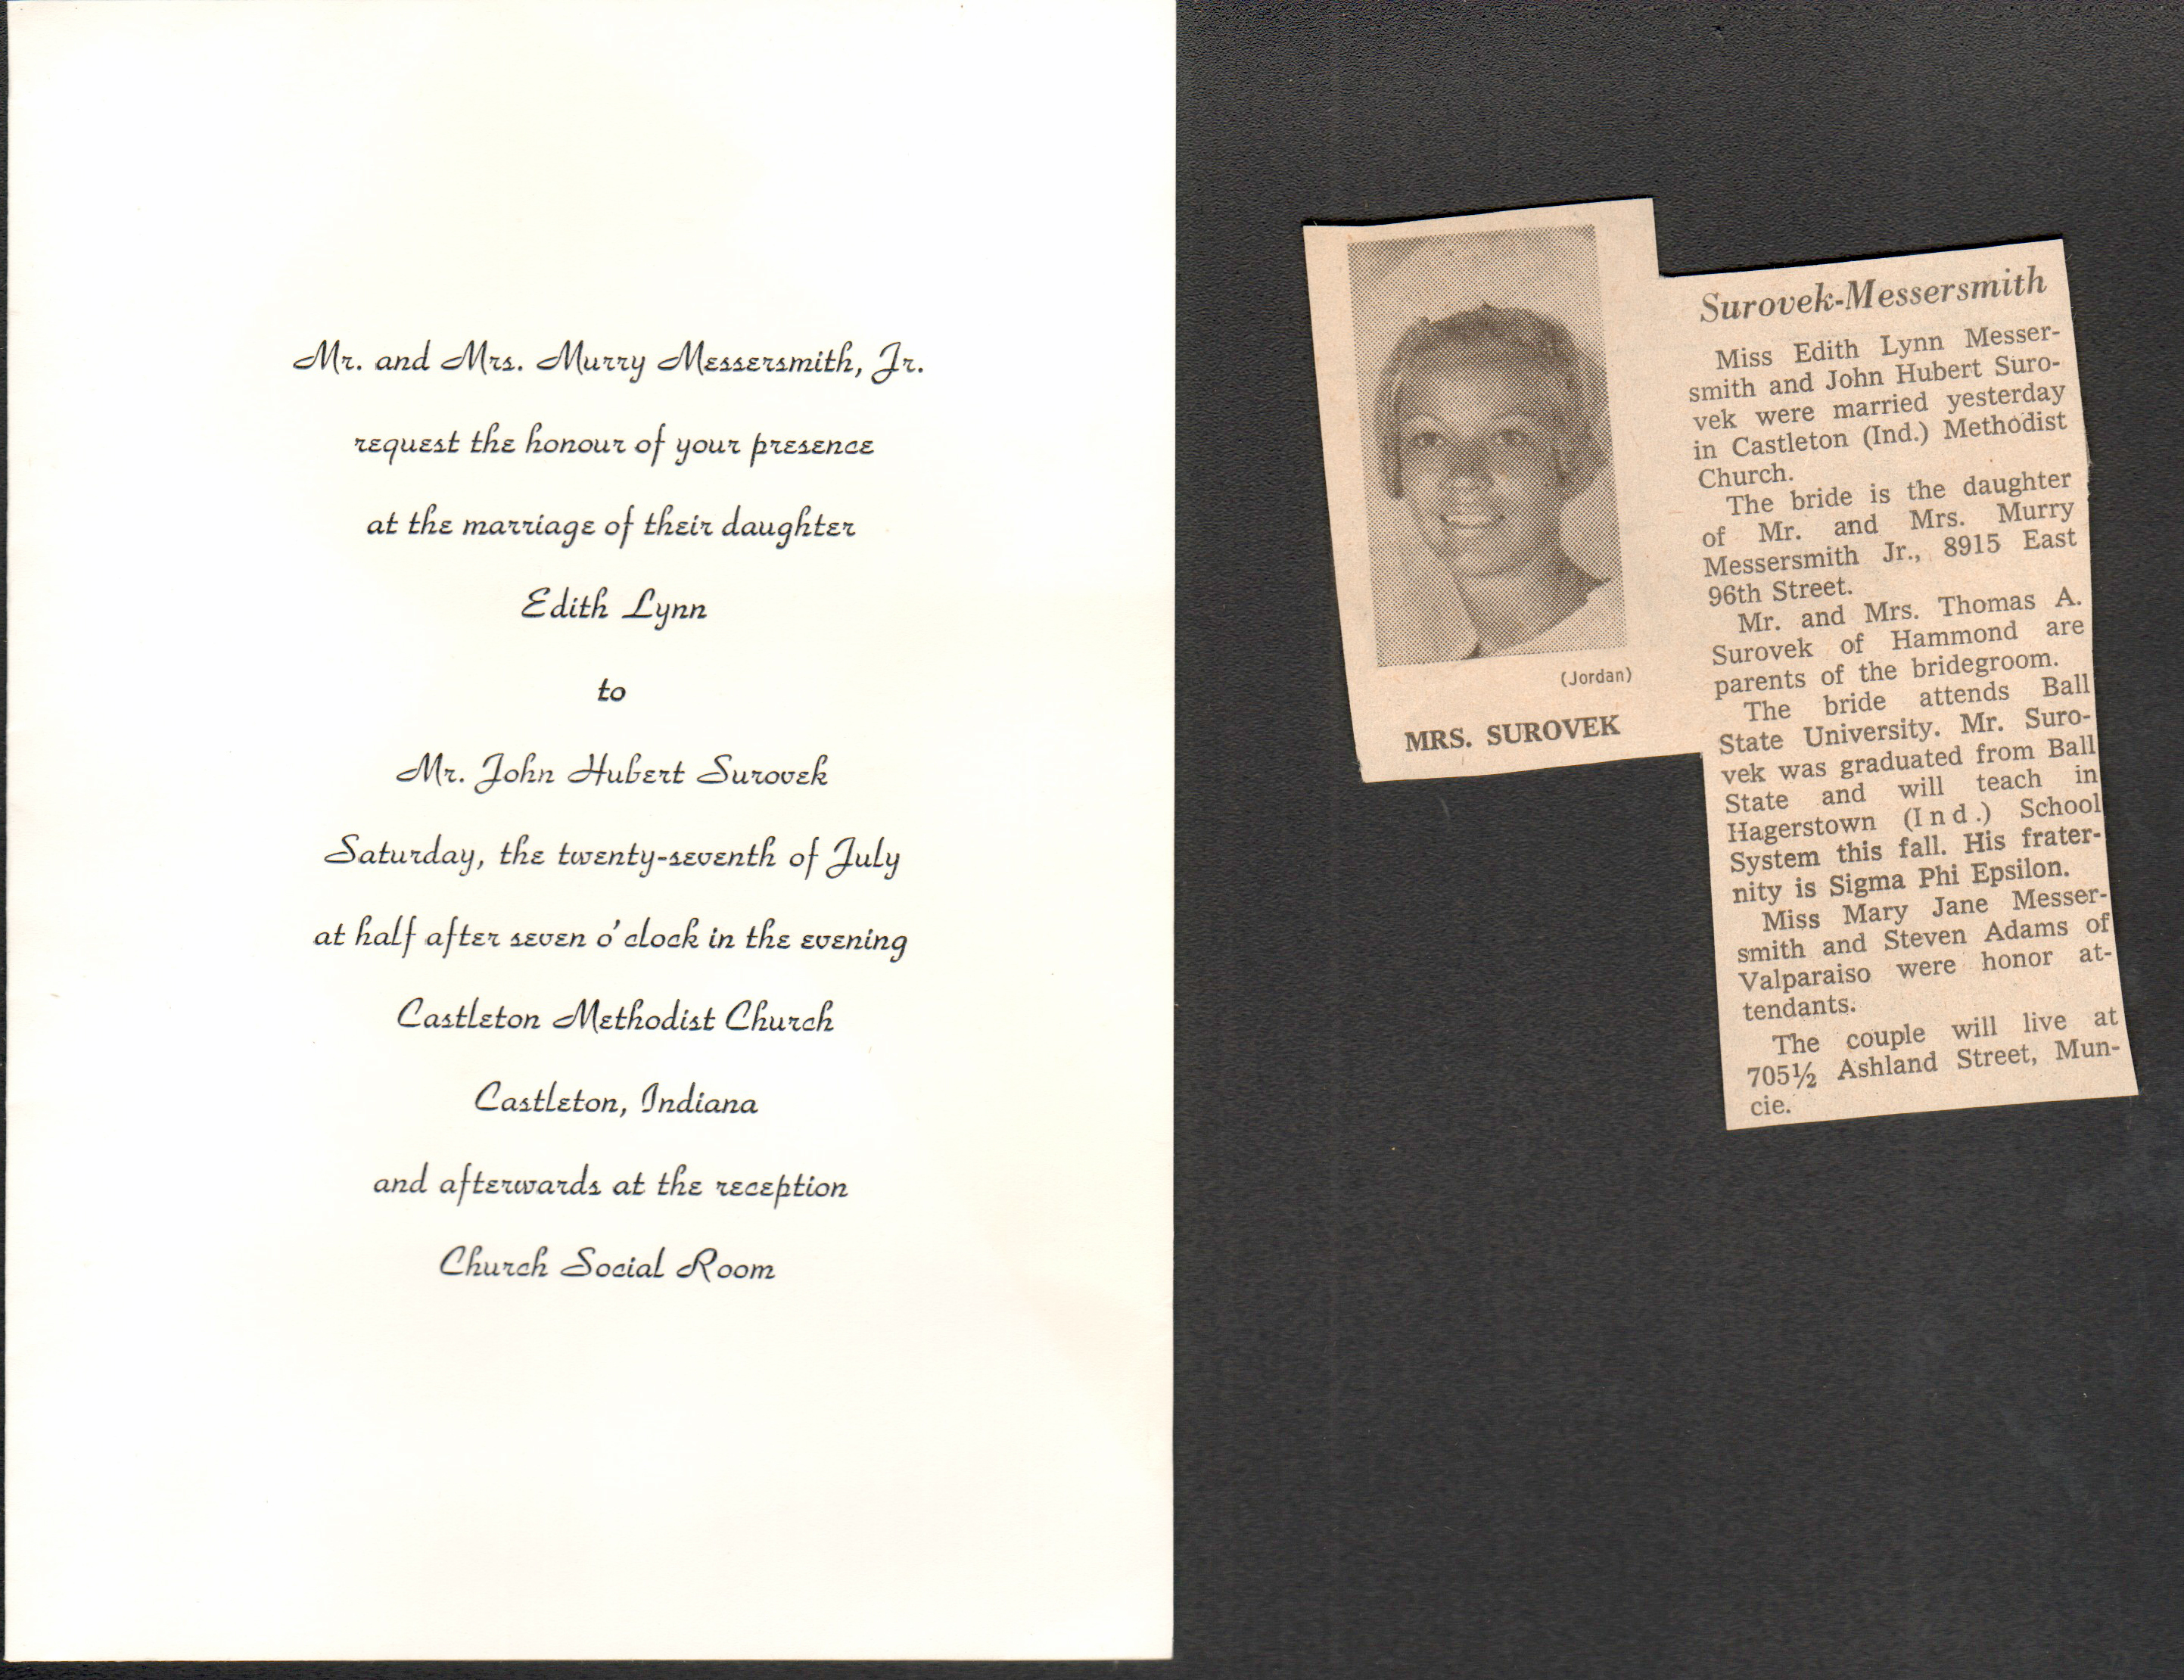 Mr. and Mrs. Murry Messersmith, Jr.
request the honour of your presence
at the marriage of their daughter
Edith Lynn
to
Mr. John Hubert Surovek
Saturday, the twenty-seventh of July
at half after seven o'clock in the evening
Castleton Methodist Church
Castleton, Indiana
and afterwards at the reception
Church Social Room
(Jordan)
MRS. SUROVEK
Surovek-Messersmith
Miss Edith Lynn Messer-
smith and John Hubert Suro-
vek were married yesterday
in Castleton (Ind.) Methodist
Church.
The bride is the daughter
of Mr. and Mrs. Murry
Messersmith Jr., 8915 East
96th Street.
Mr. and Mrs. Thomas A.
Surovek of Hammond are
parents of the bridegroom.
The bride attends Ball
State University. Mr. Suro-
vek was graduated from Ball
State and will teach in
Hagerstown (Ind.) School
System this fall. His frater-
nity is Sigma Phi Epsilon.
Miss Mary Jane Messer-
smith and Steven Adams of
Valparaiso were honor at-
tendants.
The couple will live at
705½ Ashland Street, Mun-
cie.